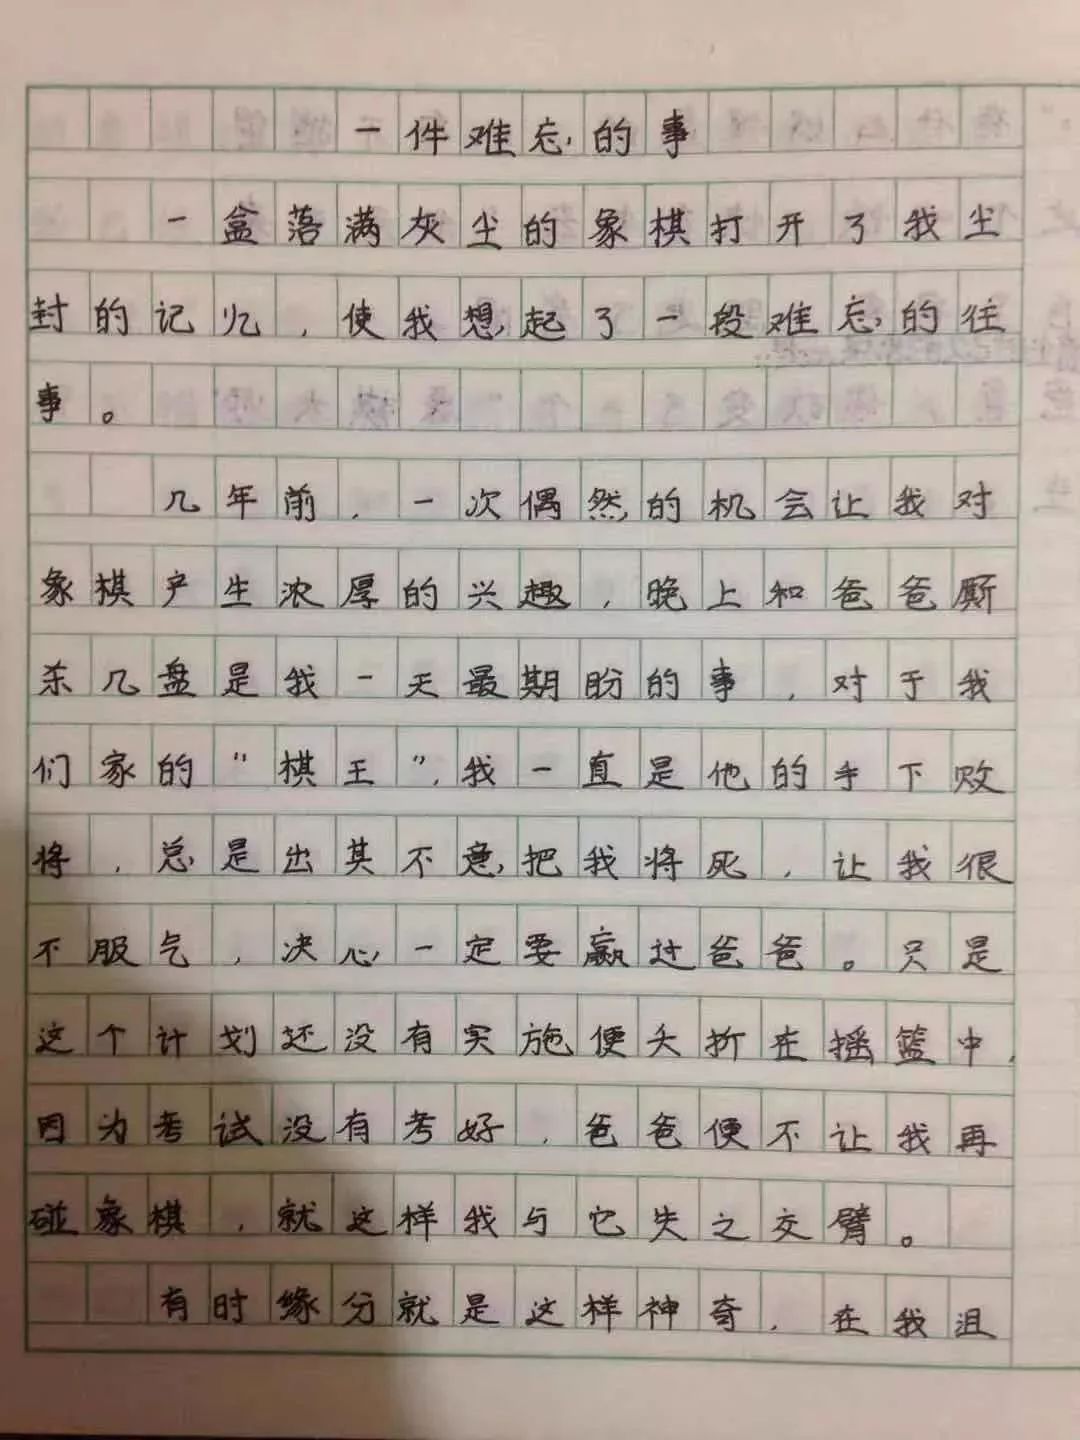 一件难忘的事
一盒落满灰尘的象棋打开了我尘
封的记忆，使我想起了一段难忘的往
事。
几年前，一次偶然的机会让我对
象棋产生浓厚的兴趣，晚上和爸爸厮
杀几盘是我一天最期盼的事，对于我
们家的“棋王”，我一直是他的手下败
将，总是出其不意把我将死，让我很
不服气，决心一定要赢过爸爸。只是
这个计划还没有实施便夭折在摇篮中，
因为考试没有考好，爸爸便不让我再
碰象棋，就这样我与它失之交臂。
有时缘分就是这样神奇，在我沮